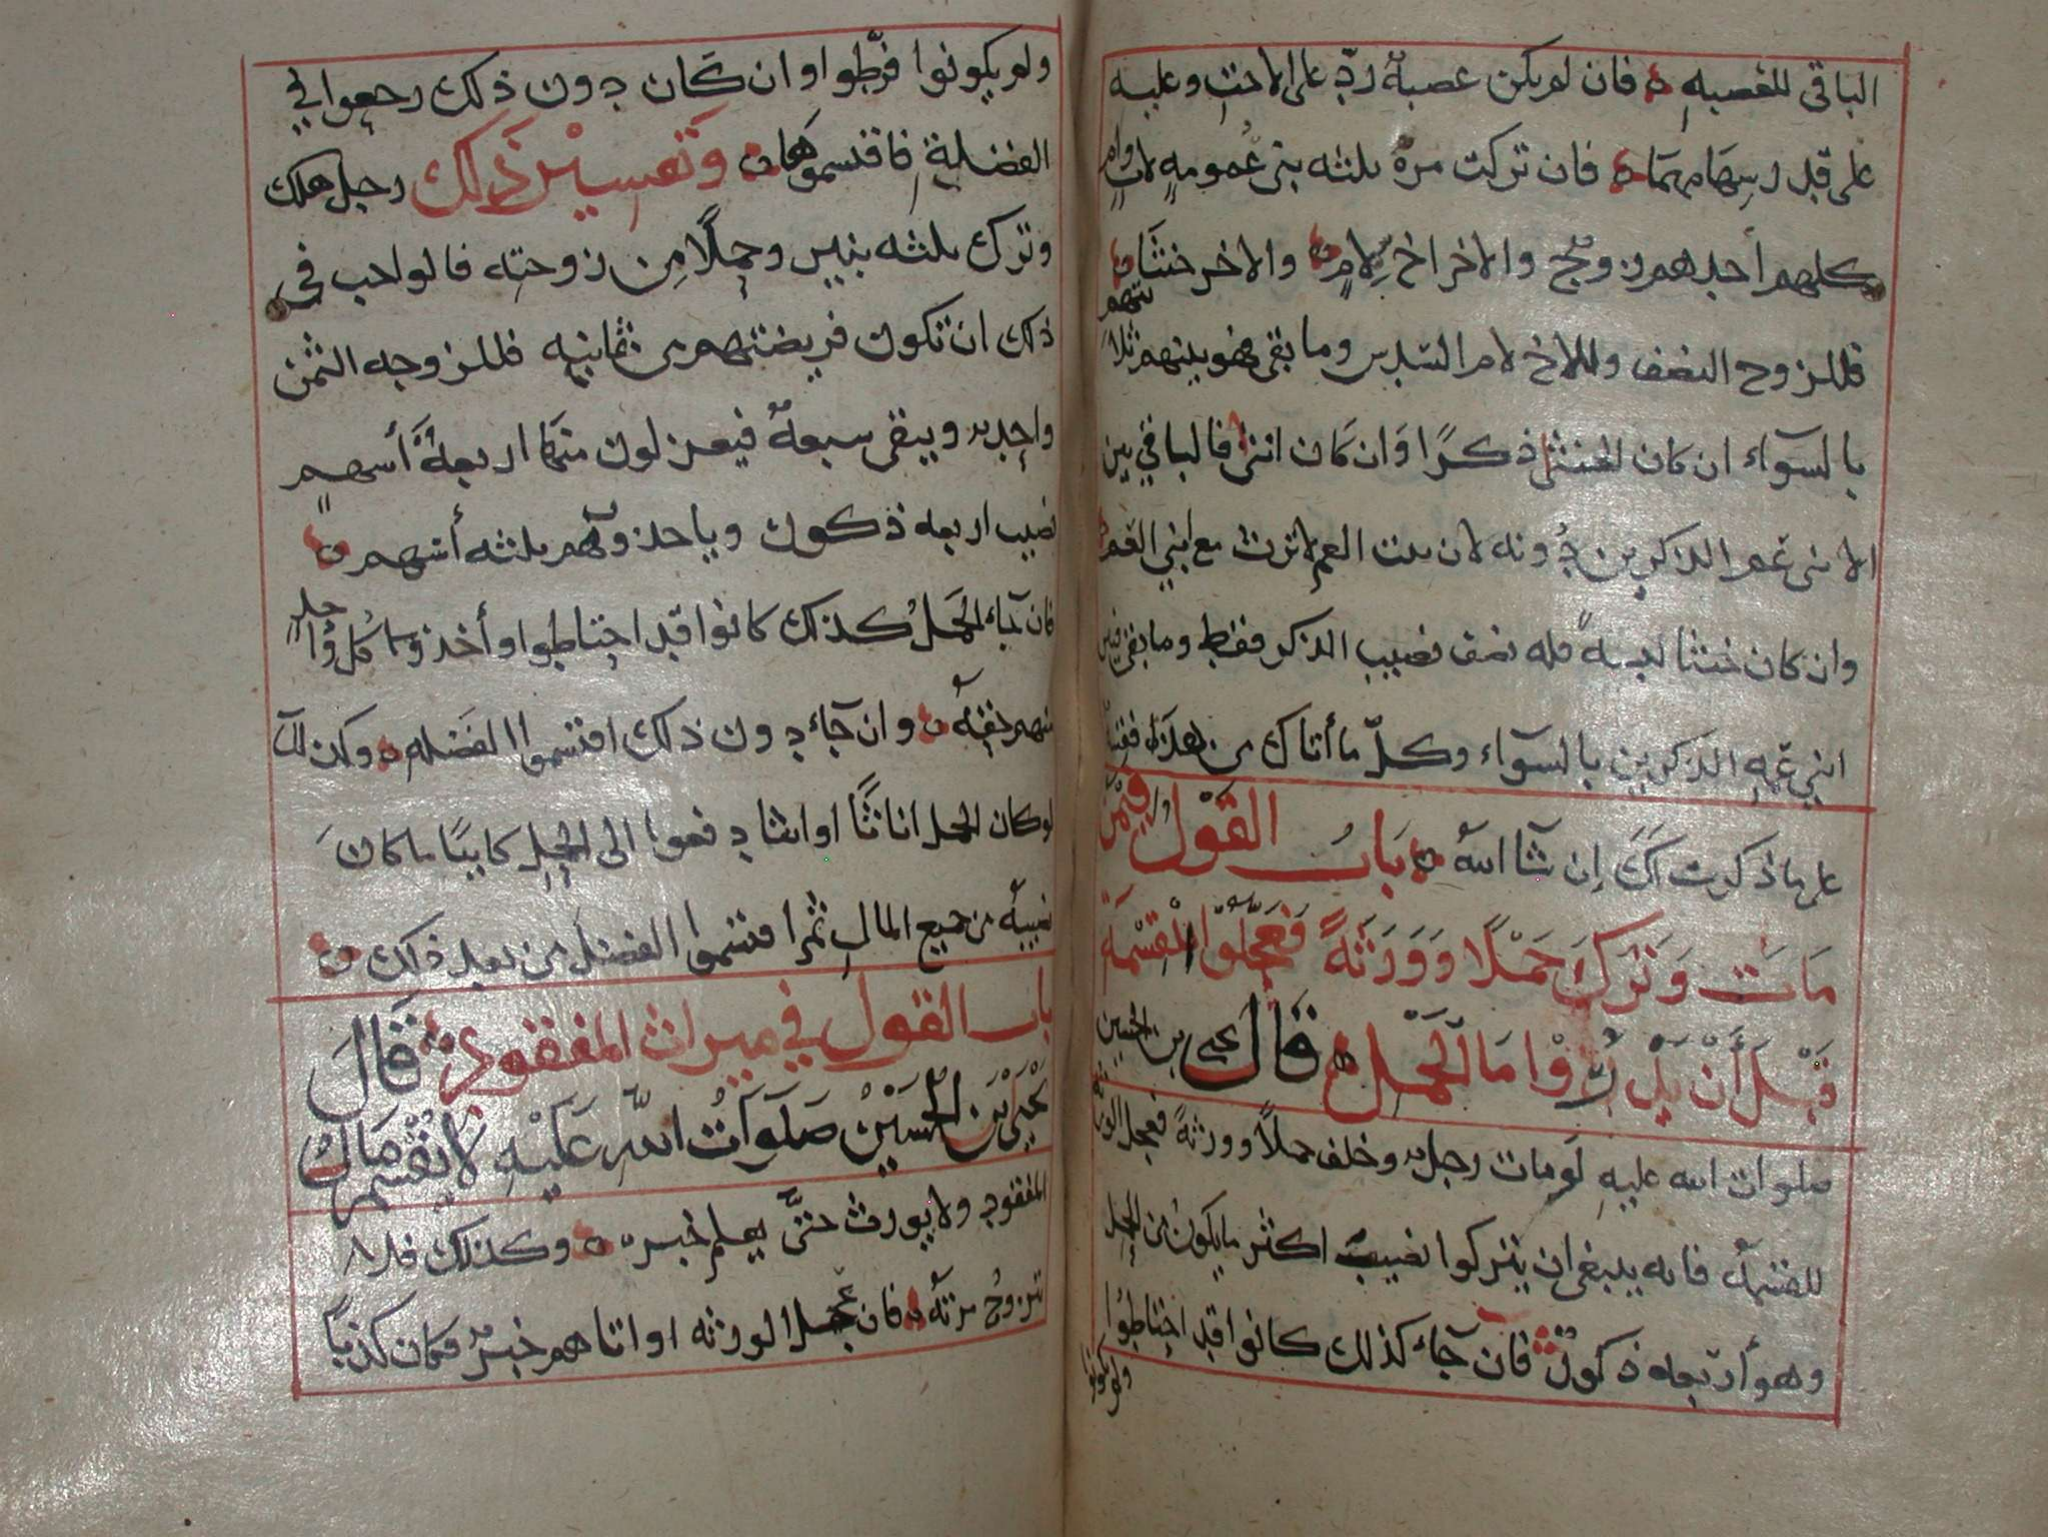 الباقي للعصبه ه فان لم يكن عصبة رد على الاخت وعليه
على قدر سهامهما ه فان تركت مرة ثلثه بني عمومه لاب وام
كلهم أحدهم زوج والاخر اخ لام ه والاخر خنثا ه
فللزوج النصف وللاخ لام السدس وما بقي فهو بينهم ثلاثتهم
بالسوآء ان كان الخنثى ذكرًا وان كان انثى فالباقي بين
الابني عم الذكرين دونه لان بنت العم لا ترث مع ابني العم
وان كان خنثا لبسة فله نصف نصيب الذكر فقط وما بقي فبين
ابني عمه الذكرين بالسوآء وكل ما أتاك من هذا فقسه
على ما ذكرت لك إن شا الله ه باب القول فيمن
مات وترك حملًا وورثة فعجلوا القسمة
قبل أن يدروا ما الحمل ه قال يحيى بن الحسين
صلوات الله عليه لو مات رجل وخلف حملًا وورثة فعجل الورثه
للقسمة فانه ينبغي ان يتركوا نصيب اكثر ما يكون من الحمل
وهو أربعه ذكور فان جآء كذلك كانوا قد احتاطوا
ولم يكونوا
ولم يكونوا فرطوا وان كان دون ذلك رجعوا في
الفضلة فاقتسموها ه وتفسير ذلك رجل هلك
وترك ثلثه بنين وحملًا من زوجته فالواجب في
ذلك ان تكون فريضتهم من ثمانيه فللزوجه الثمن
واحد ويبقى سبعة فيعزلون منها اربعة أسهم
نصيب اربعه ذكور وياخذوا هم ثلثه أسهم ه
فان جاء الحمل كذلك كانوا قد احتاطوا وأخذوا كل واحد
منهم حقه ه وان جآء دون ذلك اقتسموا الفضله ه وكذلك
لو كان الحمل اناثًا او انثا دفعوا الى الحمل كاينًا ما كان
نصيبه من جميع المال ثم اقتسموا الفضل من بعد ذلك ه
باب القول في ميراث المفقود ه قال
يحيى بن الحسين صلوات الله عليه لا يقسم مال
المفقود ولا يورث حتى يعلم خبره ه وكذلك فلا
تزوج مرته ه فان عجل الورثه او اتاهم خبر فكان كذبًا